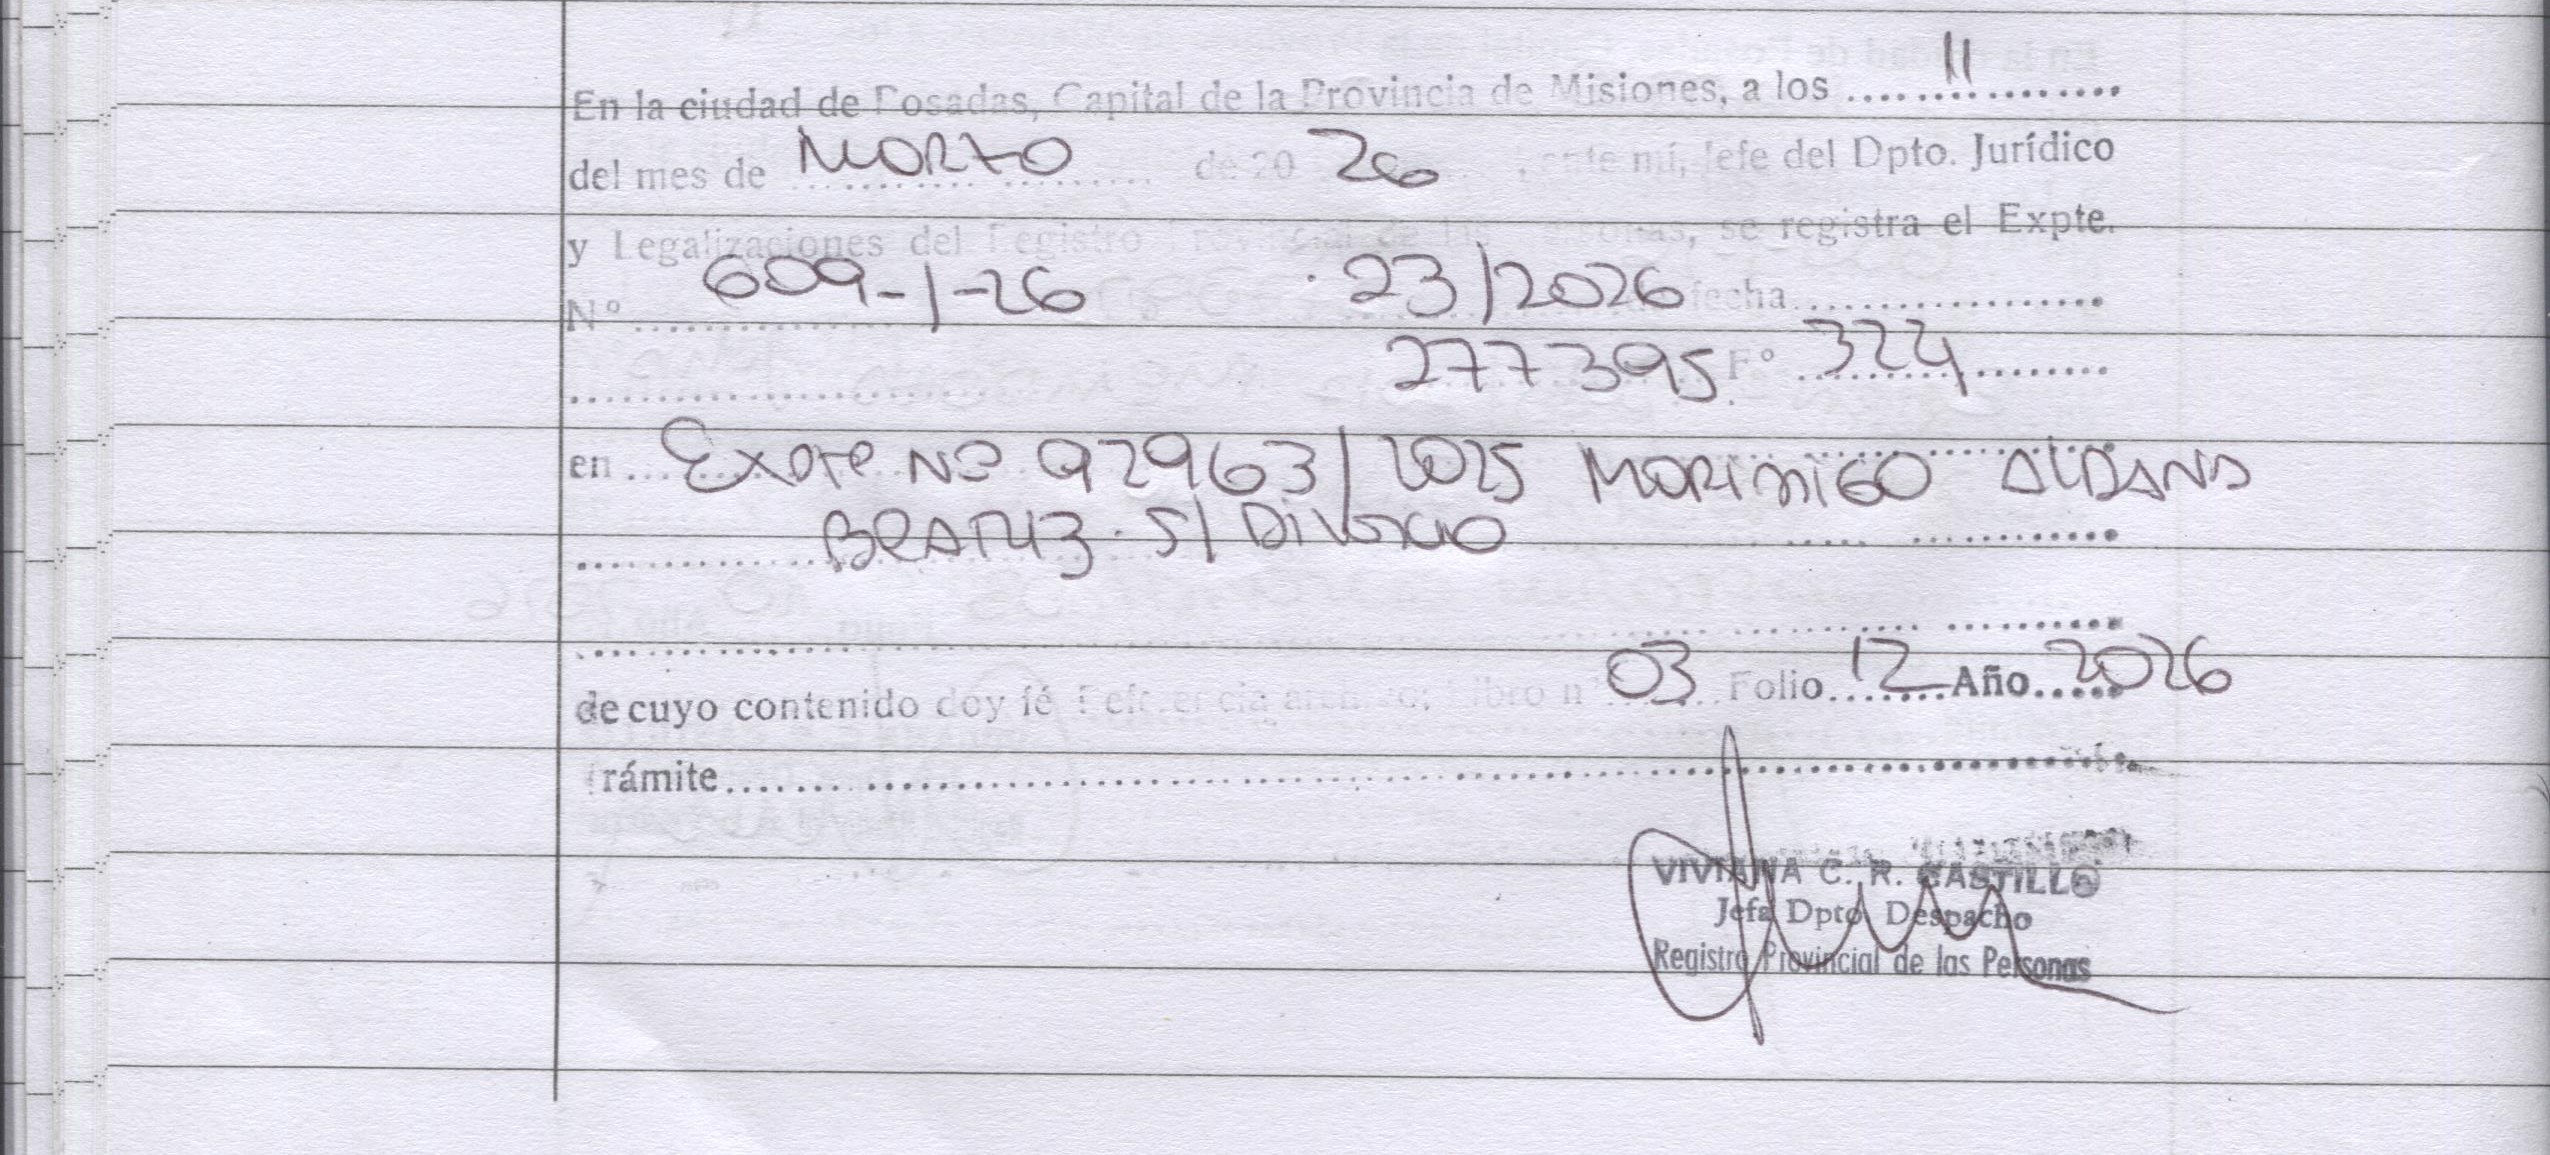 En la ciudad de Posadas, Capital de la Provincia de Misiones, a los 11
del mes de MARZO de 20 26 ante mí, Jefe del Dpto. Jurídico
y Legalizaciones del Registro Provincial de las Personas, se registra el Expte.
Nº 609-1-26 23/2026 fecha
277395 Fº 324
en Expte Nº 92963/2025 MORINIGO ALDANA
BEATRIZ S/ DIVORCIO
de cuyo contenido doy fé Referencia archivo: Libro nº 03 Folio 12 Año 2026
trámite
VIVIANA C. R. CASTILLO
Jefa Dpto Despacho
Registro Provincial de las Personas